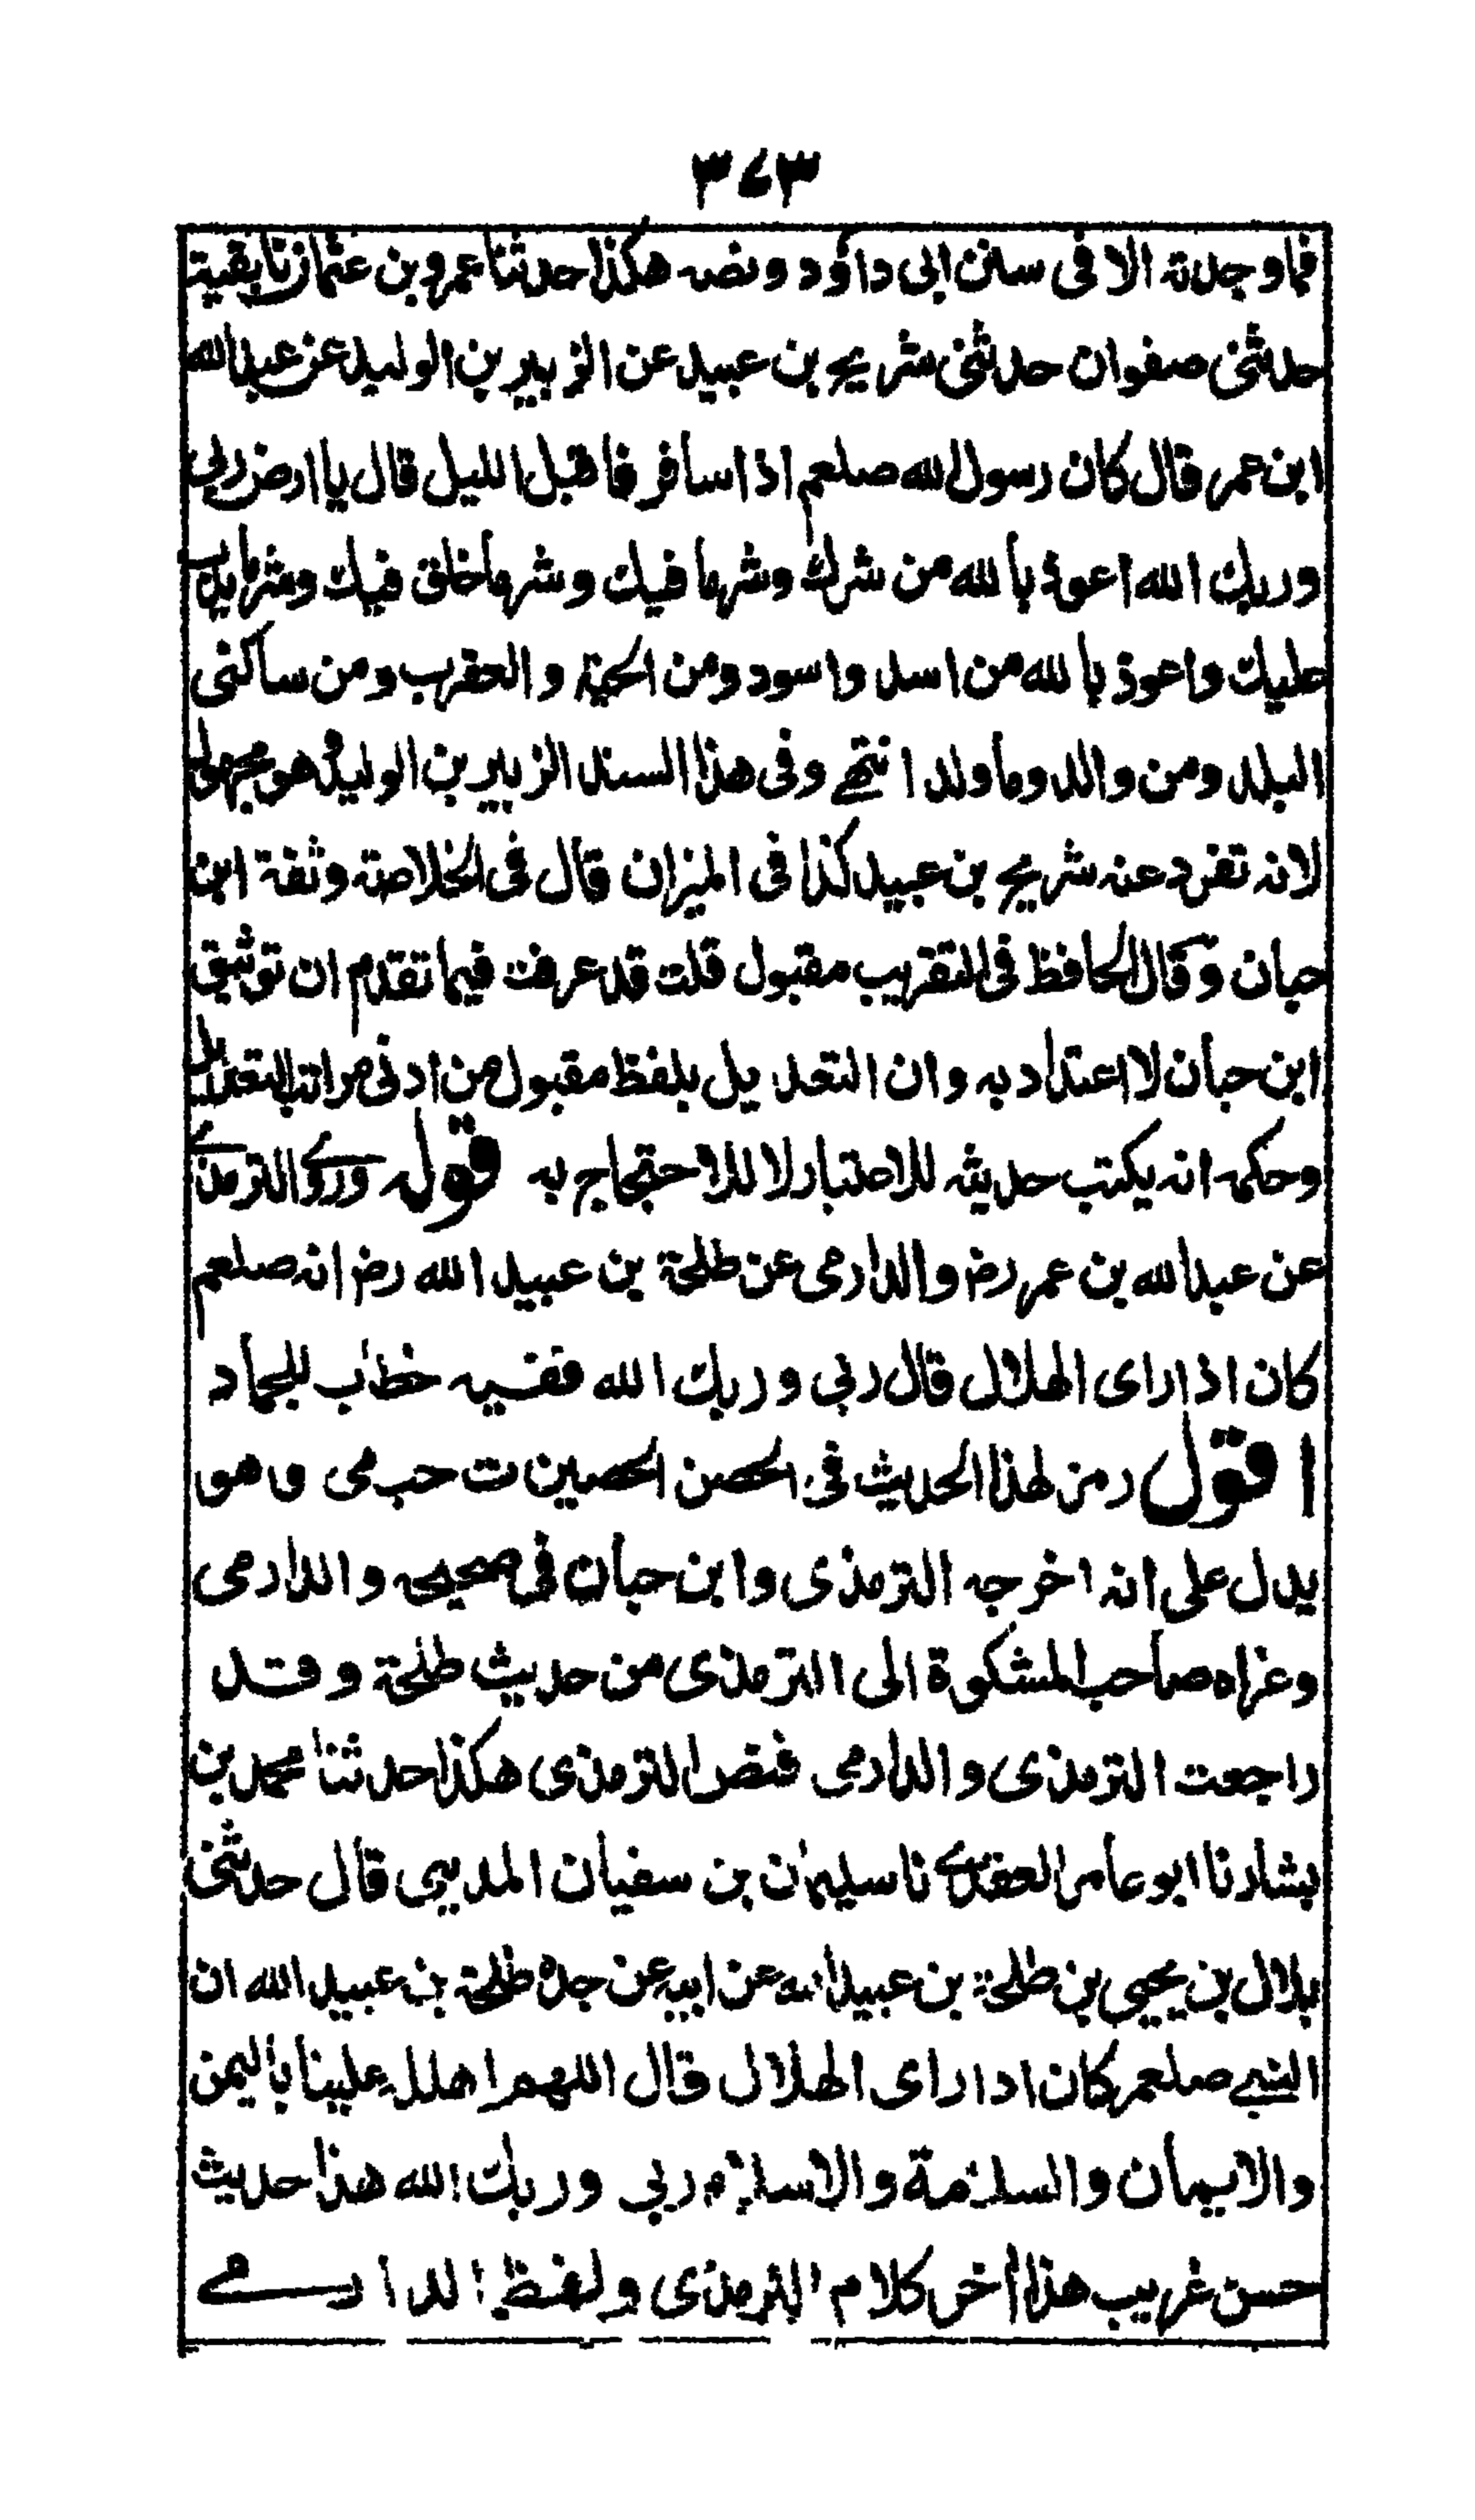 ٣٤٣
فما وجدته الا فى سنن ابى داؤد ونصه هكذا حدثنا عمرو بن عثمان نا بقية
حدثنى صفوان حدثنى شريح بن عبيد عن الزبير بن الوليد عن عبد الله
ابن عمر قال كان رسول الله صلعم اذا سافر فاقبل الليل قال يا ارض ربى
وربك الله اعوذ بالله من شرك وشر ما فيك وشر ما خلق فيك وشر ما يدب
عليك واعوذ بالله من اسد واسود ومن الحية والعقرب ومن ساكنى
البلد ومن والد وما ولد انتهى وفى هذا السند الزبير بن الوليد وهو مجهول
لانه تفرد عنه شريح بن عبيد كذا فى الميزان قال فى الخلاصة وثقة ابن
حبان وقال الحافظ فى التقريب مقبول قلت قد عرفت فيما تقدم ان توثيق
ابن حبان لا اعتداد به وان التعديل بلفظ مقبول من ادنى مراتب التعديل
وحكمه انه يكتب حديثه للاعتبار لا للاحتجاج به قوله وروى الترمذى
عن عبد الله بن عمر رض والدارمى عن طلحة بن عبيد الله رض انه صلعم
كان اذا راى الهلال قال ربى وربك الله ففيه خطاب للجماد
اقول رمز لهذا الحديث فى الحصن الحصين ت حب مى وهو
يدل على انه اخرجه الترمذى وابن حبان فى صحيحه والدارمى
وعزاه صاحب المشكوة الى الترمذى من حديث طلحة وقد
راجعت الترمذى والدارمى فنص الترمذى هكذا حدثنا محمد بن
بشار نا ابو عامر العقدى نا سليمان بن سفيان المدينى قال حدثنى
بلال بن يحيى بن طلحة بن عبيد الله عن ابيه عن جده طلحة بن عبيد الله ان
النبى صلعم كان اذا راى الهلال قال اللهم اهلله علينا باليمن
والايمان والسلامة والاسلام ربى وربك الله هذا حديث
حسن غريب هذا أخر كلام الترمذى ولفظ الدارمى